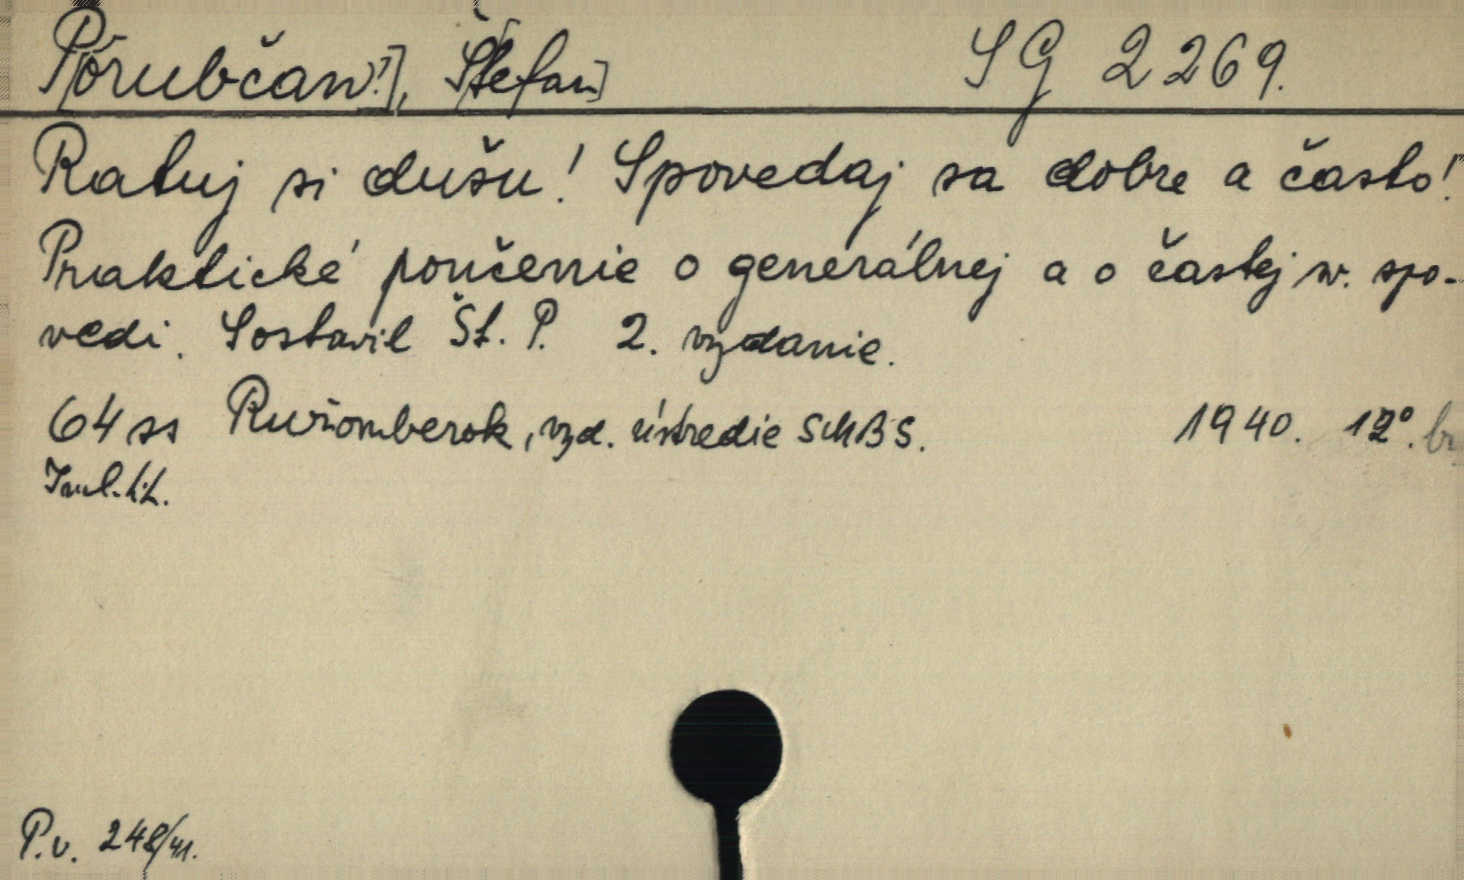 P[orubčan?], Št[efan] SG 2269.
Ratuj si dušu! Spovedaj sa dobre a často!
Praktické poučenie o generálnej a o častej sv. spo-
vedi. Sostavil Št. P. 2. vydanie.
64 ss Ružomberok, vyd. ústredie SMBS. 1940. 12°. br
P.v. 248/41.